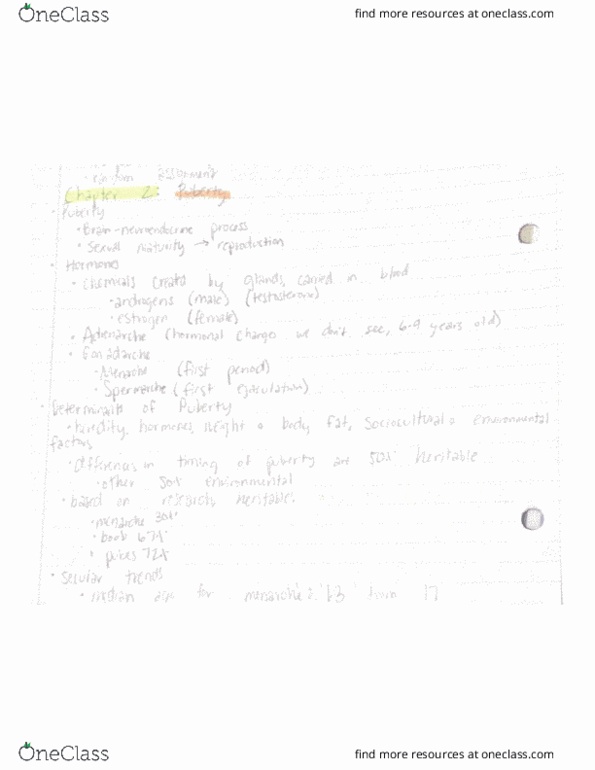 OneClass
find more resources at oneclass.com
assignment
Chapter 2: Puberty
• Puberty
• Brain-neuroendocrine process
• Sexual maturity → reproduction
• Hormones
• Chemicals created by glands, carried in blood
• androgens (male) (testosterone)
• estrogen (female)
• Adrenarche (hormonal changes we don't see, 6-9 years old)
• Gonadarche
• Menarche (first period)
• Spermarche (first ejaculation)
• Determinants of Puberty
• heredity, hormones, weight + body fat, sociocultural + environmental
factors
• differences in timing of puberty are 50% heritable
• other 50% environmental
• based on research, heritable:
• menarche
• boob 67%
• pubes 72%
• Secular trends
• median age for menarche 13 from 17
OneClass
find more resources at oneclass.com